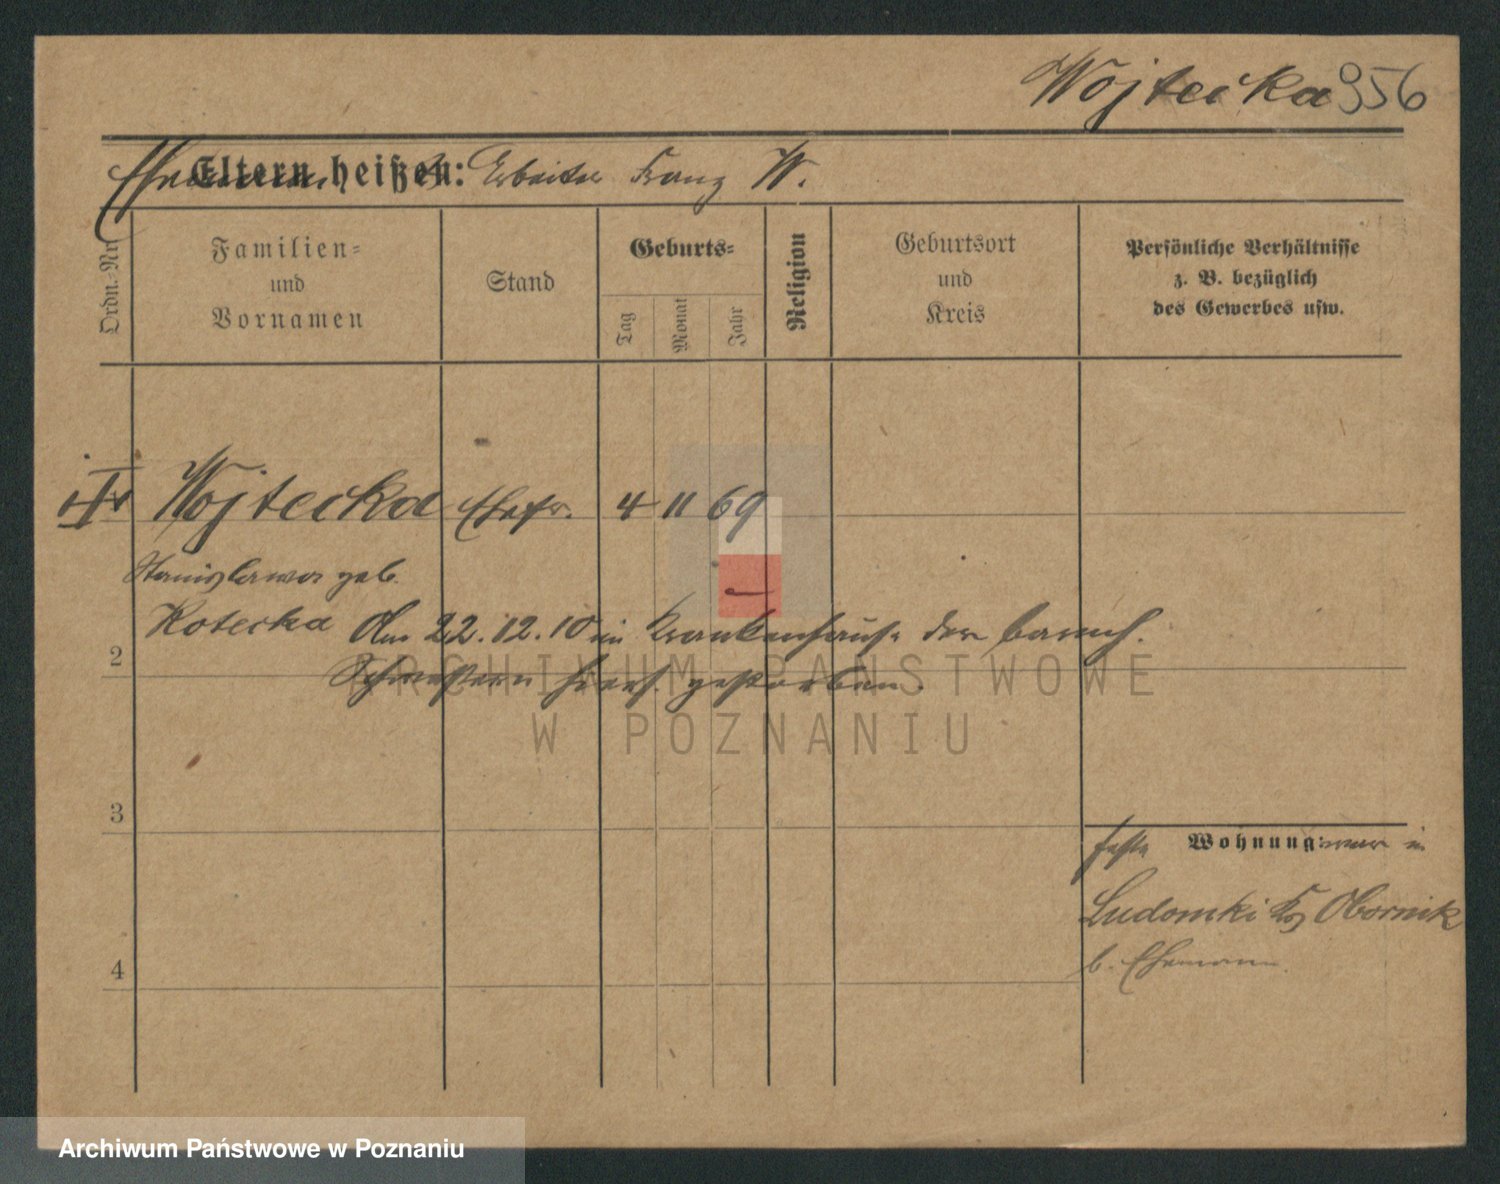 Wojtecka 956
Eltern heißen: Arbeiter Franz W.
Ordn.-Nr.
Familien-
und
Vornamen
Stand
Geburts-
Tag
Monat
Jahr
Religion
Geburtsort
und
Kreis
Persönliche Verhältnisse
z. B. bezüglich
des Gewerbes usw.
Wojtecka Ehefr. 4 11 69
Stanislawa geb.
Kotecka Am 22.12.10 im Krankenhause der barmh.
2
Schwestern hiers. gestorben.
ARCHIWUM PAŃSTWOWE
W POZNANIU
3
feste Wohnung: war in
Ludomki Krs Obornik
4
b. Ehemann.
Archiwum Państwowe w Poznaniu